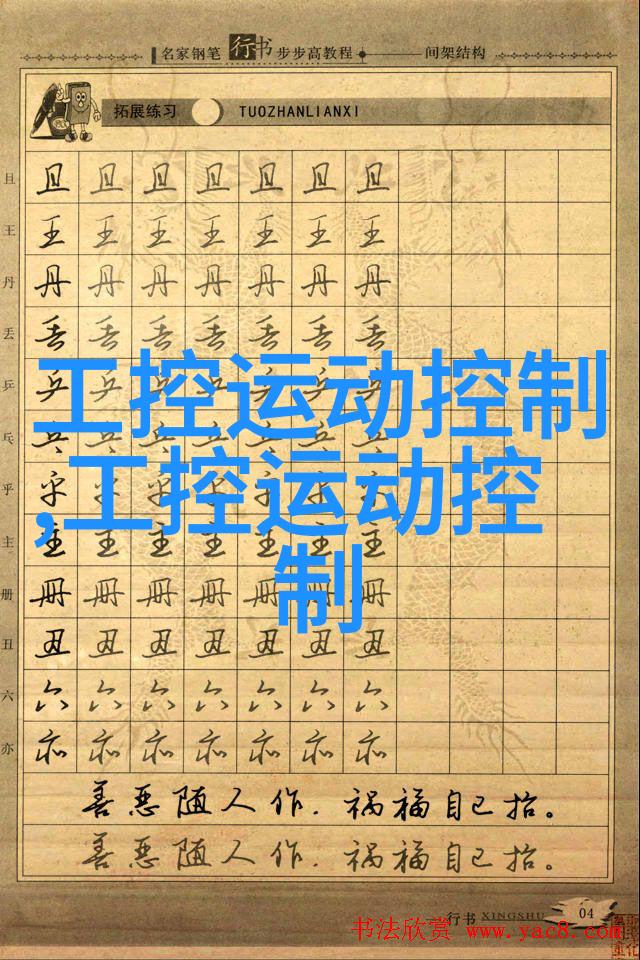 名家钢笔行书步步高教程 间架结构
拓展练习 TUOZHANLIANXI
且 且 且 且 且 且 且 且
王 王 王 王 王 王 王 王
丹 丹 丹 丹 丹 丹 丹 丹
丢 丢 丢 丢 丢 丢 丢 丢
乒 乒 乒 乒 乒 乒 乒 乒
氐 兵 兵 兵 兵 兵 兵 兵
乎 乎 乎 乎 乎 乎 乎 乎
主 主 主 主 主 主 主 主
册 册 册 册 册 册 册 册
丑 丑 丑 丑 丑 丑 丑 丑
六 六 六 六 六 六 六 六
亦 亦 亦 亦 亦 亦 亦 亦
工控运动控制
,工控运动控
制
善恶随人作.祸福自己招。
善恶随人作.祸福自己招。
行书 XINGSHU 04
书法欣赏 www.yac8.com